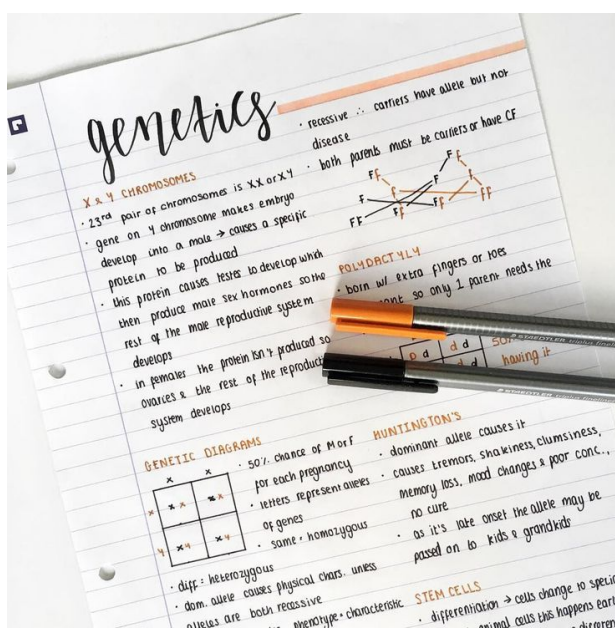 genetics
X & Y CHROMOSOMES
· 23rd pair of chromosomes is XX or XY
· gene on Y chromosome makes embryo
develop into a male → causes a specific
protein to be produced
· this protein causes testes to develop which
then produce male sex hormones so the
rest of the male reproductive system
develops
· in females the protein isn't produced so
ovaries & the rest of the reproduct
system develops
GENETIC DIAGRAMS
x x
x x x x x
y x y x y
· 50% chance of M or F
for each pregnancy
· letters represent alleles
of genes
· same = homozygous
· diff = heterozygous
· dom. allele causes physical chars. unless
alleles are both recessive
phenotype = characteristic
· recessive ∴ carriers have allele but not
disease
· both parents must be carriers or have CF
FF Ff
F f
F f
FF Ff Ff FF
POLYDACTYLY
· born w/ extra fingers or toes
so only 1 parent needs the
D d d d
d d
having it
STAEDTLER
STAEDTLER
HUNTINGTON'S
· dominant allele causes it
· causes tremors, shakiness, clumsiness,
memory loss, mood changes & poor conc.,
no cure
· as it's late onset the allele may be
passed on to kids & grandkids
STEM CELLS
· differentiation → cells change to speci
animal cells this happens earl